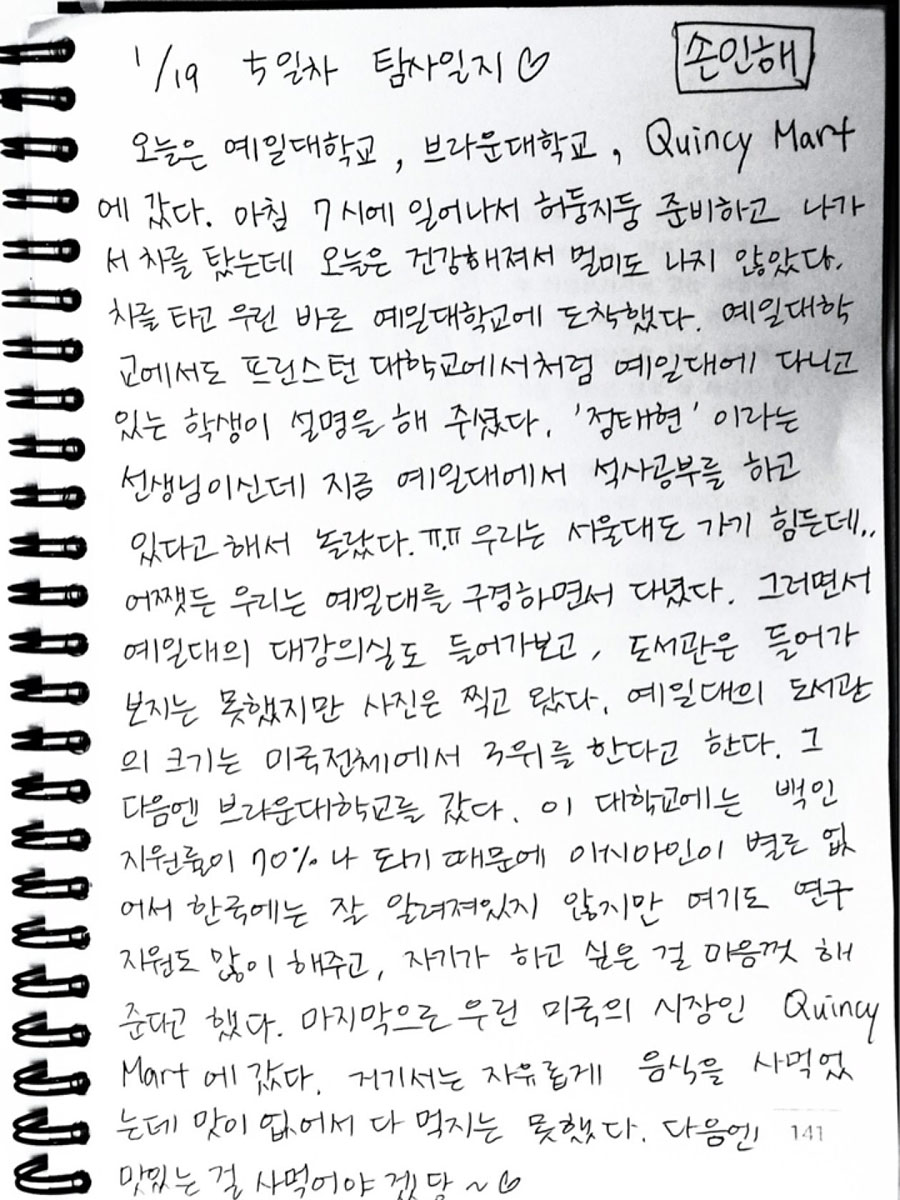 1/19 5일차 탐사일지♡ 손인해
오늘은 예일대학교, 브라운대학교, Quincy Mart
에 갔다. 아침 7시에 일어나서 허둥지둥 준비하고 나가
서 차를 탔는데 오늘은 건강해져서 멀미도 나지 않았다.
차를 타고 우린 바로 예일대학교에 도착했다. 예일대학
교에서도 프린스턴 대학교에서처럼 예일대에 다니고
있는 학생이 설명을 해 주셨다. '정태현' 이라는
선생님이신데 지금 예일대에서 석사공부를 하고
있다고 해서 놀랐다.ㅠ.ㅠ 우리는 서울대도 가기 힘든데..
어쨋든 우리는 예일대를 구경하면서 다녔다. 그러면서
예일대의 대강의실도 들어가보고, 도서관은 들어가
보지는 못했지만 사진은 찍고 왔다. 예일대의 도서관
의 크기는 미국전체에서 3위를 한다고 한다. 그
다음엔 브라운대학교를 갔다. 이 대학교에는 백인
지원률이 70%나 되기 때문에 아시아인이 별로 없
어서 한국에는 잘 알려져있지 않지만 여기도 연구
지원도 많이 해주고, 자기가 하고 싶은 걸 마음껏 해
준다고 했다. 마지막으로 우린 미국의 시장인 Quincy
Mart 에 갔다. 거기서는 자유롭게 음식을 사먹었
는데 맛이 없어서 다 먹지는 못했다. 다음엔
맛있는 걸 사먹어야 겠당~♡
141